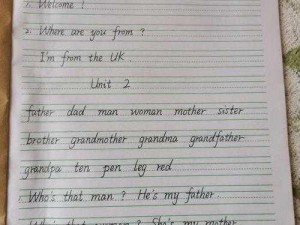 1. Welcome !
2. Where are you from ?
I'm from the UK .
Unit 2
father dad man woman mother sister
brother grandmother grandma grandfather
grandpa ten pen leg red
Who's that man ? He's my father.
Who's that woman ? She's my mother